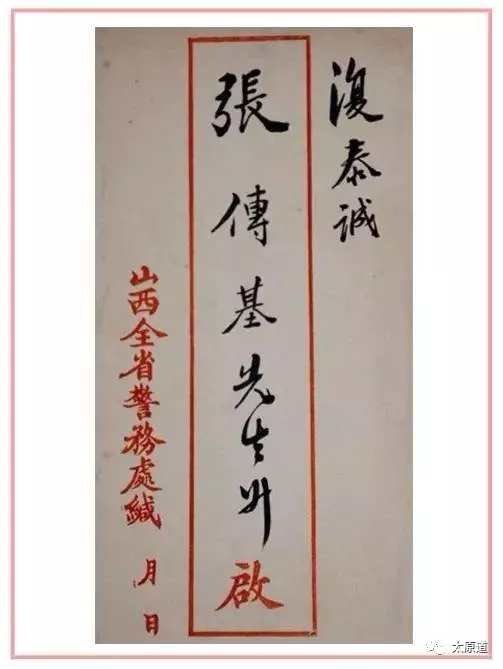 復泰誠
張傳基先生升啟
山西全省警務處緘 月 日
太原道